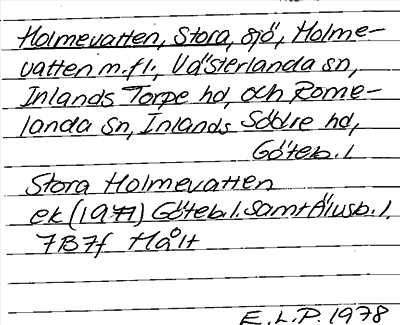 Holmevatten, Stora, sjö, Holme-
vatten m.fl., Västerlanda sn,
Inlands Torpe hd, och Rome-
landa sn, Inlands Södre hd,
Göteb. l.
Stora Holmevatten
ek (1977) Göteb. l. samt Älvsb. l.
7B7f Hålt
E.L.P. 1978